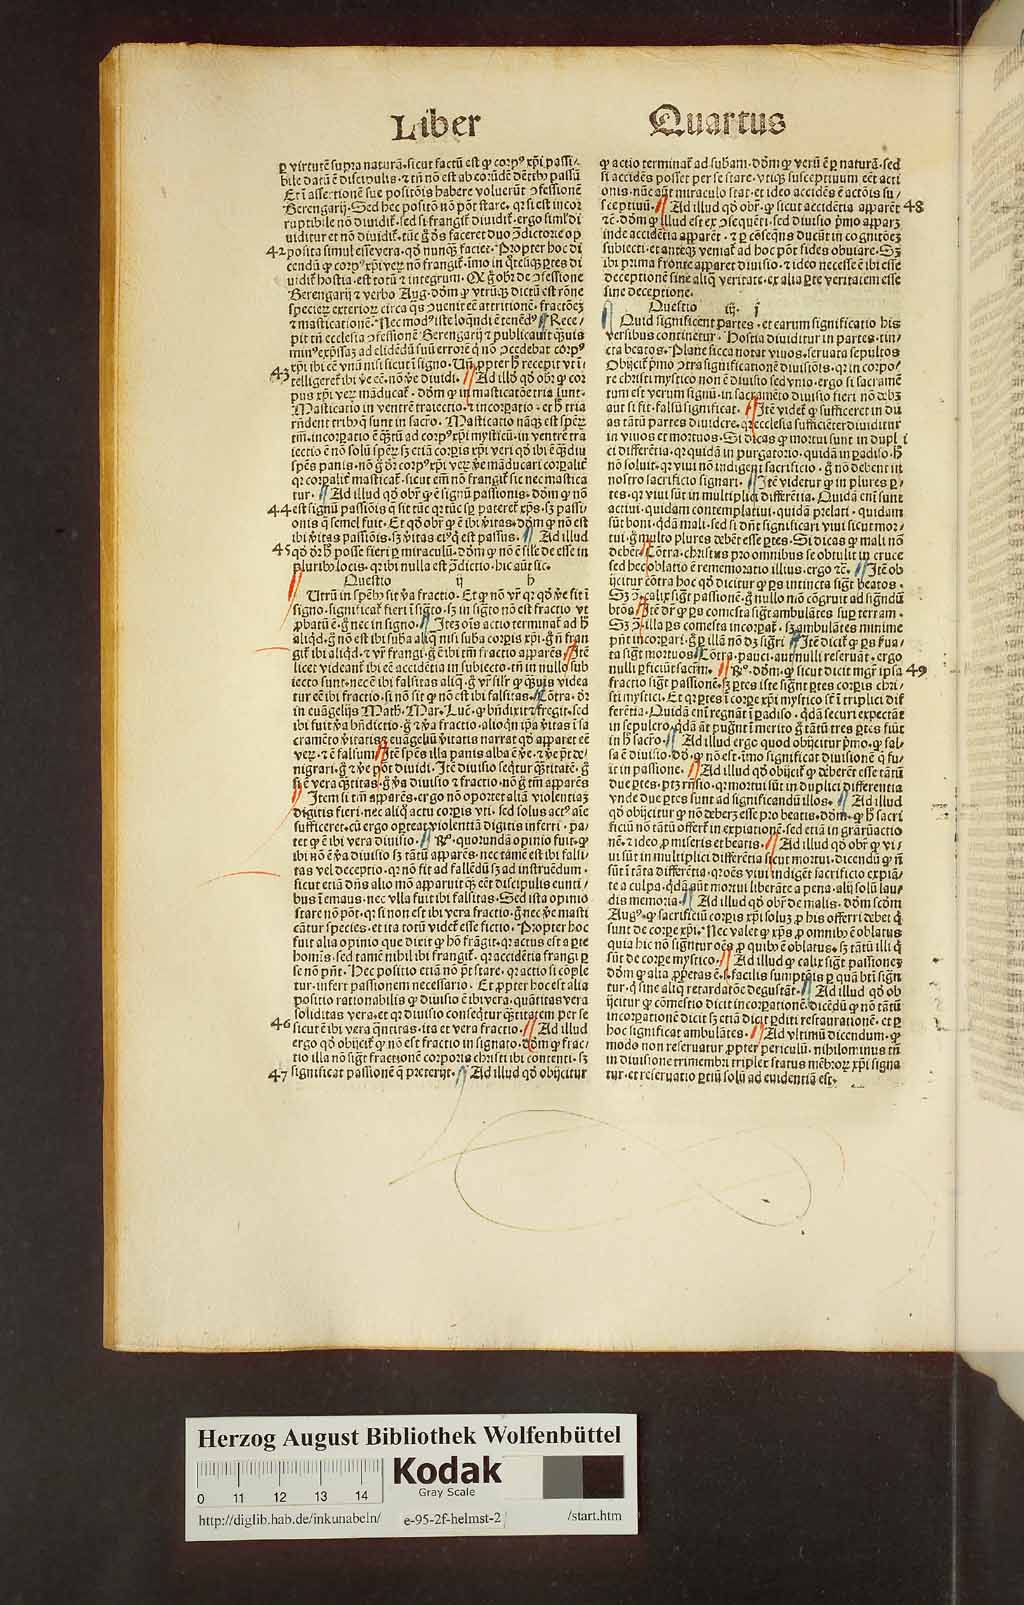 Liber
Quartus
ꝑ virtutē supra naturā. sicut factū est ꝙ corpꝰ xp̄i passi-
bile datū ē discipulis. ⁊ tn̄ nō est ab eorūdē dētibꝰ passū
Et ī assertionē sue positōis habere voluerūt ꝯfessionē
Berengarij. Sed hec positō nō pōt stare. qr si est incor
ruptibile nō diuidit᷑. sed si frangit᷑ diuidit᷑. ergo siml' di
uiditur et nō diuidit᷑. tūc g̊ ds faceret duo ꝯdictorie op
42
posita simul esse vera. qd̓ nunqꝫ faciet. Propter hoc di
cendū ꝙ corpꝰ xp̄i veꝝ nō frangit᷑. īmo in
uidit᷑ hostia. est totū ⁊ integrum. 
Berengarij ⁊ verbo Aug. dōm ꝙ vtrūqꝫ dictū est rōne
specieꝝ exterioꝝ circa qs ꝯuenit eē attritionē. fractōeꝫ
⁊ masticationē. Nec modꝰ iste loqndi ē tenēdꝰ. Rece-
pit tn̄ ecclesia ꝯfessionē Berengarij ⁊ publicauit qꝫuis
minꝰ exp̄ssaꝫ ad elidēdū suū errorē q̄ nō ꝯcedebat corpꝰ
xp̄i ibi eē vnū nisi sicut ī signo. Un̄ ꝓpter h̄ recepit vt ī-
43
telligeret᷑ ibi v̄e eē. nō v̄e diuidi. Ad illd̓ qd̓ obr̄ ꝙ cor
pus xp̄i veꝝ māducat᷑. dōm ꝙ in masticatōe tria sunt.
Masticatio in ventrē traiectio. ⁊ incorꝑatio. et h̄ tria
rn̄dent tribꝰ q̄ sunt in sacr̄o. Masticatio nāqꝫ est speꝝ
tm̄. incorꝑatio ē qꝫtū ad corpꝰ xp̄i mysticū. in ventrē tra
iectio ē nō solū speꝝ sꝫ etiā corꝑis xp̄i veri qd̓ ibi ē qꝫdiu
spēs panis. nō g̊ dr̄ corpꝰ xp̄i veꝝ v̄e māducari corꝑalit᷑
qr corꝑalit᷑ masticat᷑. sicut em̄ nō frangit᷑ sic nec mastica
tur. Ad illud qd̓ obr̄ ꝙ ē signū passionis. dōm ꝙ nō
44
est signū passiōis q̄ sit tūc qr tūc sꝑ pateret᷑ xp̄s. sꝫ passi-
onis q̄ semel fuit. Et qd̓ obr̄ ꝙ ē ibi v̄itas. dōm ꝙ nō est
ibi v̄itas passiōis. sꝫ v̄itas eiꝰ q̄ est passus. Ad illud
45
qd̓ dr̄ hꝰ posse fieri ꝑ miraculū. dōm ꝙ nō ē sil'e de esse in
pluribꝰ locis. qr ibi nulla est ꝯdictio. hic aūt sic.
Questio ij h
Utrū in spēbꝰ sit v̄a fractio. Et ꝙ nō vr̄ qr qd̓ v̄e fit ī
signo. significat᷑ fieri ī sig̊to. sꝫ in sig̊to nō est fractio vt
ꝓbatū ē. g̊ nec in signo. Itē ois actio terminat᷑ ad h̄
aliqd. g̊ nō est ibi suba aliq̄ nisi suba corꝑis xp̄i. g̊ n̄ fran
git᷑ ibi aliqd. ⁊ vr̄ frangi. g̊ ē ibi tm̄ fractio apparēs. Itē
licet videant᷑ ibi eē accidētia in subiecto. tn̄ in nullo sub
iecto sunt. nec ē ibi falsitas aliq̄. g̊ vr̄ sil'r ꝙ qꝫuis videa
tur eē ibi fractio. si nō sit ꝙ nō est ibi falsitas. Cōtra. dr̄
in euāgelijs Math. Mar. Luc̄. ꝙ bn̄dixit ⁊ fregit. sed
ibi fuit v̄a bn̄dictio. g̊ ⁊ v̄a fractio. alioqn ip̄a v̄itas ī sa
cramēto v̄itatis ⁊ euāgeliū v̄itatis narrat qd̓ apparet eē
veꝝ. ⁊ ē falsum. Itē spēs illa panis alba ē v̄e. ⁊ v̄e pōt de-
nigrari. g̊ ⁊ v̄e pōt diuidi. Itē diuisio seqtur qꝫtitatē. g̊
si ē vera qꝫtitas. g̊ v̄a diuisio ⁊ fractio. nō g̊ tm̄ apparēs
Item si tm̄ apparēs. ergo nō oportet aliā violentiaꝫ
digitis fieri. nec aliq̄ actu corꝑis vti. sed solus actꝰ aīe
sufficeret. cū ergo oporteat violentiā digitis inferri. pa-
tet ꝙ ē ibi vera diuisio. Rn̄. quorundā opinio fuit. ꝙ
ibi nō ē v̄a diuisio sꝫ tātū apparēs. nec tamē est ibi falsi-
tas vel deceptio. qr nō fit ad fallēdū sꝫ ad instruēdum.
sicut etiā dn̄s alio mō apparuit qꝫ eēt discipulis eunti-
bus ī emaus. nec vlla fuit ibi falsitas. Sed ista opinio
stare nō pōt. qr si non est ibi vera fractio. g̊ nec v̄e masti
cātur species. et ita totū videt᷑ esse fictio. Propter hoc
fuit alia opinio que dixit ꝙ hō frāgit. qr actus est a ꝑte
homīs. sed tamē nihil ibi frangit᷑. qr accidētia frangi ꝑ
se nō pn̄t. Hec positio etiā nō pōt stare. qr actio si cōple
tur. infert passionem necessario. Et ꝓpter hoc est alia
positio rationabilis ꝙ diuisio ē ibi vera. quātitas vera
soliditas vera. et qr diuisio conseqtur qꝫtitatem per se
46
sicut ē ibi vera qntitas. ita et vera fractio. Ad illud
ergo qd̓ obijcit᷑ ꝙ nō est fractio in signato. dōm ꝙ frac-
tio illa nō sig̊t fractionē corporis christi ibi contenti. sꝫ
47
significat passionē q̄ preterijt. Ad illud qd̓ obijcitur
ꝙ actio terminat᷑ ad subam. dōm ꝙ verū ē ꝑ naturā. sed
si accidēs posset per se stare. vtiqꝫ susceptiuum eēt acti
onis. nūc aūt miraculo stat. et ideo accidēs ē actōis su-
48
sceptiuū. Ad illud qd̓ obr̄. ꝙ sicut accidētia apparēt
⁊c̄. dōm ꝙ illud est ex ꝯsequēti. sed diuisio p̄mo apparꝫ
inde accidētia apparēt. ⁊ ꝑ cōseqns ducūt in cognitōeꝫ
subiecti. et anteqꝫ veniat᷑ ad hoc pōt fides obuiare. Sꝫ
ibi prima fronte apparet diuisio. ⁊ ideo necesse ē ibi esse
deceptionē sine aliq̄ veritate. et alia ꝑte veritatem esse
sine deceptione.
Questio iij. i
Quid significent partes. et earum significatio his
versibus continetur. Hostia diuiditur in partes. tin-
cta beatos. Plane sicca notat viuos. seruata sepultos
Obijcit᷑ p̄mo ꝯtra significationē diuisiōis. qr in corpo-
re christi mystico non ē diuisio sed vnio. ergo si sacramē
tum est verum signū. in sacramēto diuisio fieri nō dꝫ
aut si fit. falsū significat. Itē videt᷑ ꝙ sufficeret in du
as tātū partes diuidere. qr ecclesia sufficiēter diuiditur
in viuos et mortuos. Si dicas ꝙ mortui sunt in dupl i
ci differētia. qr quidā in purgatorio. quidā in ꝑadiso. h̄
nō soluit. qr viui nō indigent sacrificio. g̊ nō debent in
nostro sacrificio signari. Itē videtur ꝙ in plures ꝑ-
tes. qr viui sūt in multiplici differētia. Quidā em̄ sunt
actiui. quidam contemplatiui. quidā prelati. quidam
sūt boni. qdā mali. sed si dn̄t significari viui sicut mor-
tui. g̊ multo plures debēt esse ꝑtes. Si dicas ꝙ mali nō
debēt. Cōtra. christus pro omnibus se obtulit in cruce
sed hec oblatio ē rememoratio illius. ergo ⁊c̄. Itē ob
ijcitur cōtra hoc qd̓ dicitur ꝙ ꝑs intincta sig̊t beatos.
Sꝫ ꝯ. calix sig̊t passionē. g̊ nullo mō cōgruit ad signdū
btōs. Itē dr̄ ꝙ ꝑs comesta sig̊t ambulātes suꝑ terram.
Sꝫ ꝯ. illa ꝑs comesta incorꝑat᷑. sꝫ ambulātes minime
pn̄t incorꝑari. g̊ ꝑ illā nō dꝫ sig̊ri. Itē dicit᷑ ꝙ ꝑs r̄fua-
ta sig̊t mortuos. Cōtra. pauci. aut nulli reseruāt. ergo
49
nulli ꝑficiūt sacr̄m. Rn̄. dōm. ꝙ sicut dicit mgr̄ ipsa
fractio sig̊t passionē. sꝫ ꝑtes iste sign̄t ꝑtes corꝑis chri-
sti mystici. Et qr ꝑtes ī corꝑe xp̄i mystico st̄ ī triplici dif
ferētia. Quidā em̄ regnāt ī ꝑadiso. qdā securi expectāt
in sepulcro. qdā āt pugn̄t ī merito g̊ tātū tres ꝑtes fiūt
in h̄ sacr̄o. Ad illud ergo quod obijcitur p̄mo. ꝙ fal-
sa ē diuisio. dd̓. ꝙ nō est. īmo significat diuisionē q̄ fu-
it in passione. Ad illud qd̓ obijcit᷑ ꝙ deberēt esse tātū
due ꝑtes. ptꝫ rn̄sio. qr mortui sūt in duplici differentia
vnde due ꝑtes sunt ad significandū illos. Ad illud
qd̓ obijcitur ꝙ nō deberꝫ esse pro beatis. dōm. ꝙ h̄ sacri
ficiū nō tātū offert᷑ in expiationē. sed etiā in gr̄arū actio
nē. ⁊ ideo ꝓ miseris et beatis. Ad illud qd̓ obr̄ ꝙ vi-
ui sūt in multiplici differētia sicut mortui. dicendū ꝙ n̄
sūt ī tāta differētia. qr oēs viui indigēt sacrificio expiā-
te a culpa. qdā aūt mortui liberāte a pena. alij solū lau-
dis memoria. Ad illud qd̓ obr̄ de malis. dōm scd̓m
Augꝰ. ꝙ sacrificiū corꝑis xp̄i soluꝫ ꝓ his offerri debet q̄
sunt de corꝑe xp̄i. Nec valet ꝙ xp̄s ꝓ omnibꝰ ē oblatus
quia hic nō sign̄tur oēs ꝓ quibꝰ ē oblatus. sꝫ tātū illi q̄
sūt de corꝑe mystico. Ad illud ꝙ calix sig̊t passioneꝫ
dōm ꝙ alia ꝓprietas ē. s. facilis sumptiōis ꝑ quā btī sign̄
tur. q̄ sine aliq̄ retardatōe degustāt. Ad illud qd̓ ob
ijcitur ꝙ comestio dicit incorꝑationē. dicēdū ꝙ nō tātū
incorꝑationē dicit sꝫ etiā dicit ꝑditi restaurationē. et ꝑ
hoc significat ambulātes. Ad vltimū dicendum. ꝙ
modo non reseruatur ꝓpter periculū. nihilominus tn̄
in diuisione trimembri triplex status mēbroꝝ xp̄i signa
tur. et reseruatio ꝑtiū solū ad euidentiā est.
Herzog August Bibliothek Wolfenbüttel
Kodak
Gray Scale
0 11 12 13 14
http://diglib.hab.de/inkunabeln/ e-95-2f-helmst-2 /start.htm